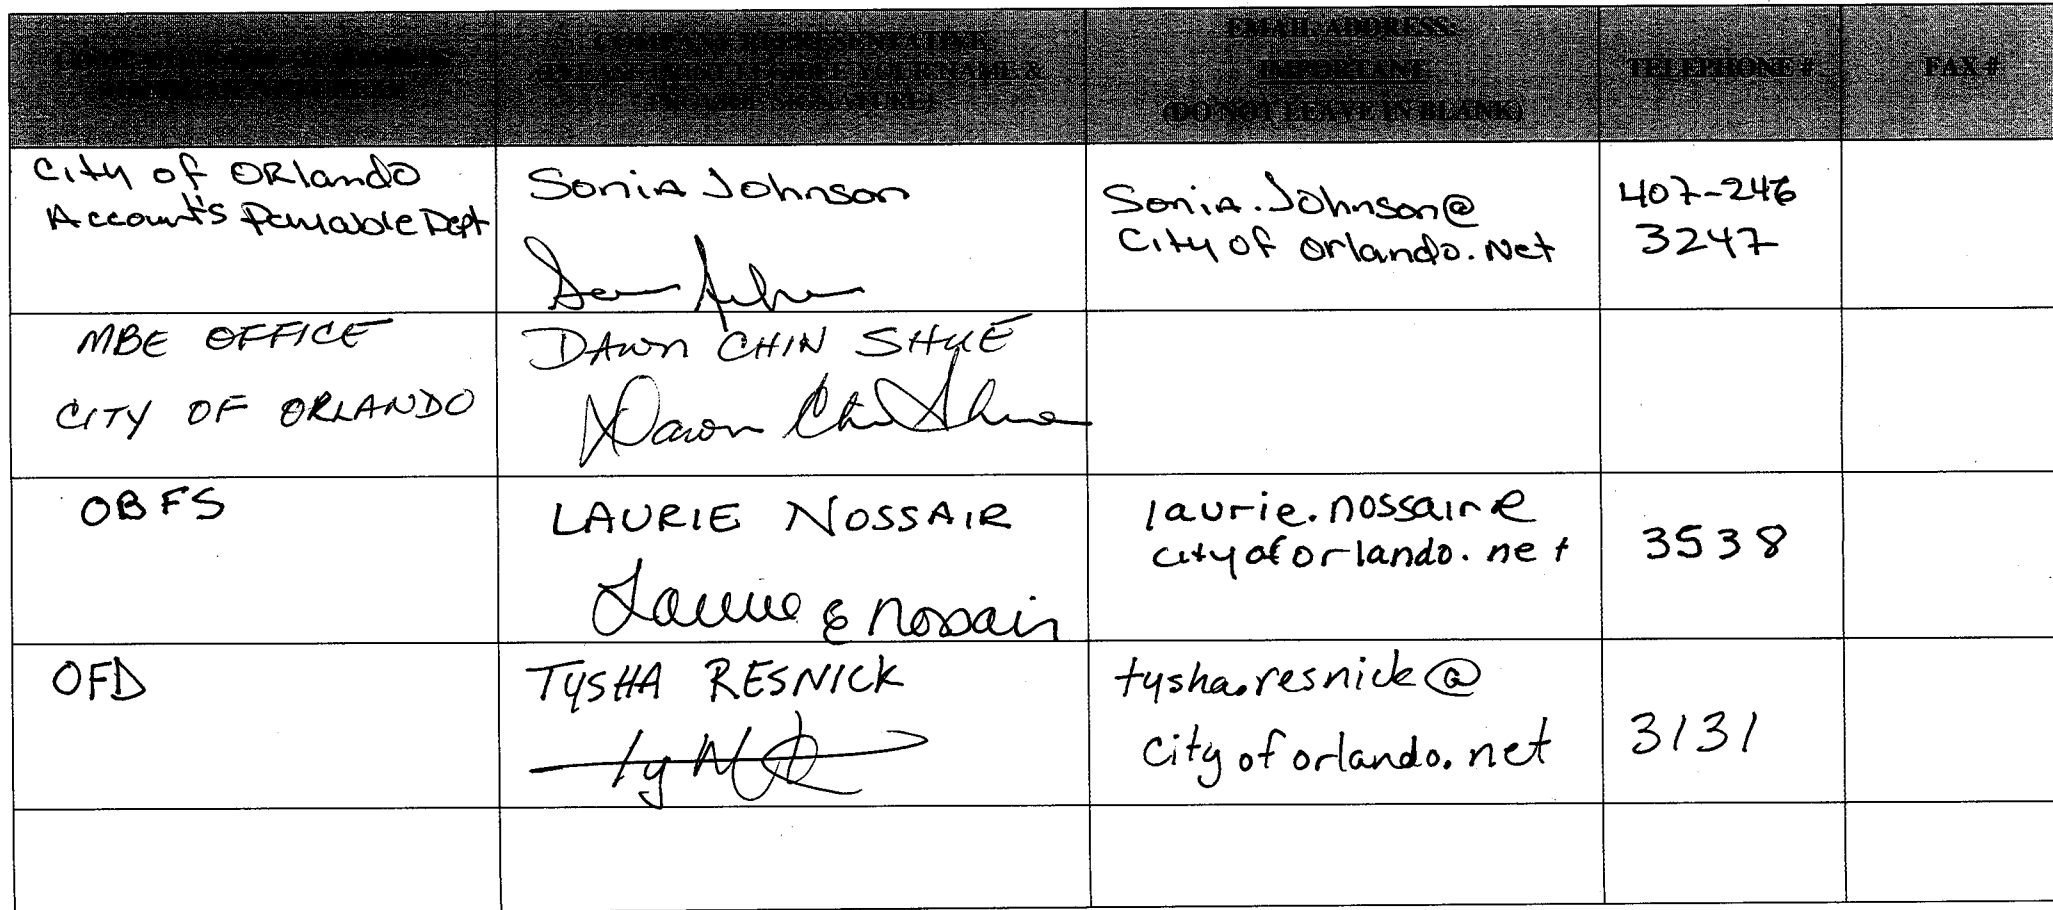 COMPANY REPRESENTATIVE
(PLEASE PRINT LEGIBLE YOUR NAME &
PROVIDE SIGNATURE)
EMAIL ADDRESS:
IMPORTANT
(DO NOT LEAVE IN BLANK)
TELEPHONE #
FAX #
City of ORlando
Account's Payable Dept
Sonia Johnson
Sonia.Johnson@
City of orlando.Net
407-246
3247
MBE OFFICE
CITY OF ORLANDO
DAWN CHIN SHUE
Dawn Chin Shue
OBFS
LAURIE NOSSAIR
Laurie E Nossair
laurie.nossair@
cityoforlando.net
3538
OFD
TYSHA RESNICK
tysha.resnick@
city of orlando.net
3131